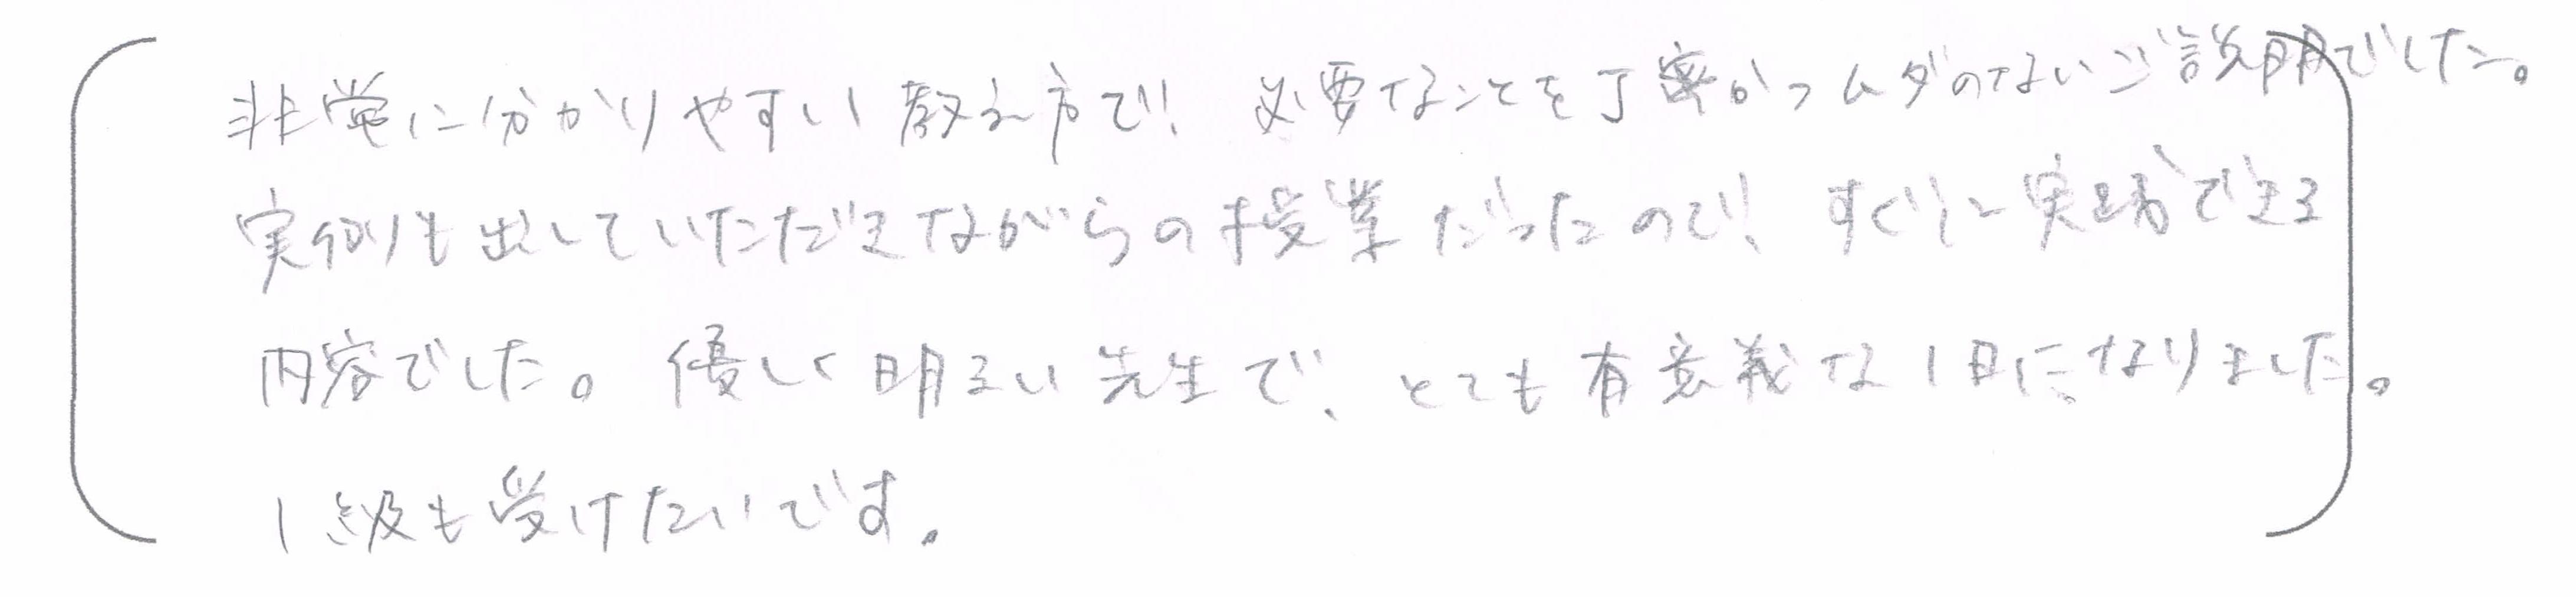 非常に分かりやすい教え方で、必要なことを丁寧かつムダのないご説明でした。
実例も出していただきながらの授業だったので、すぐに実践できる
内容でした。優しく明るい先生で、とても有意義な1日になりました。
1級も受けたいです。